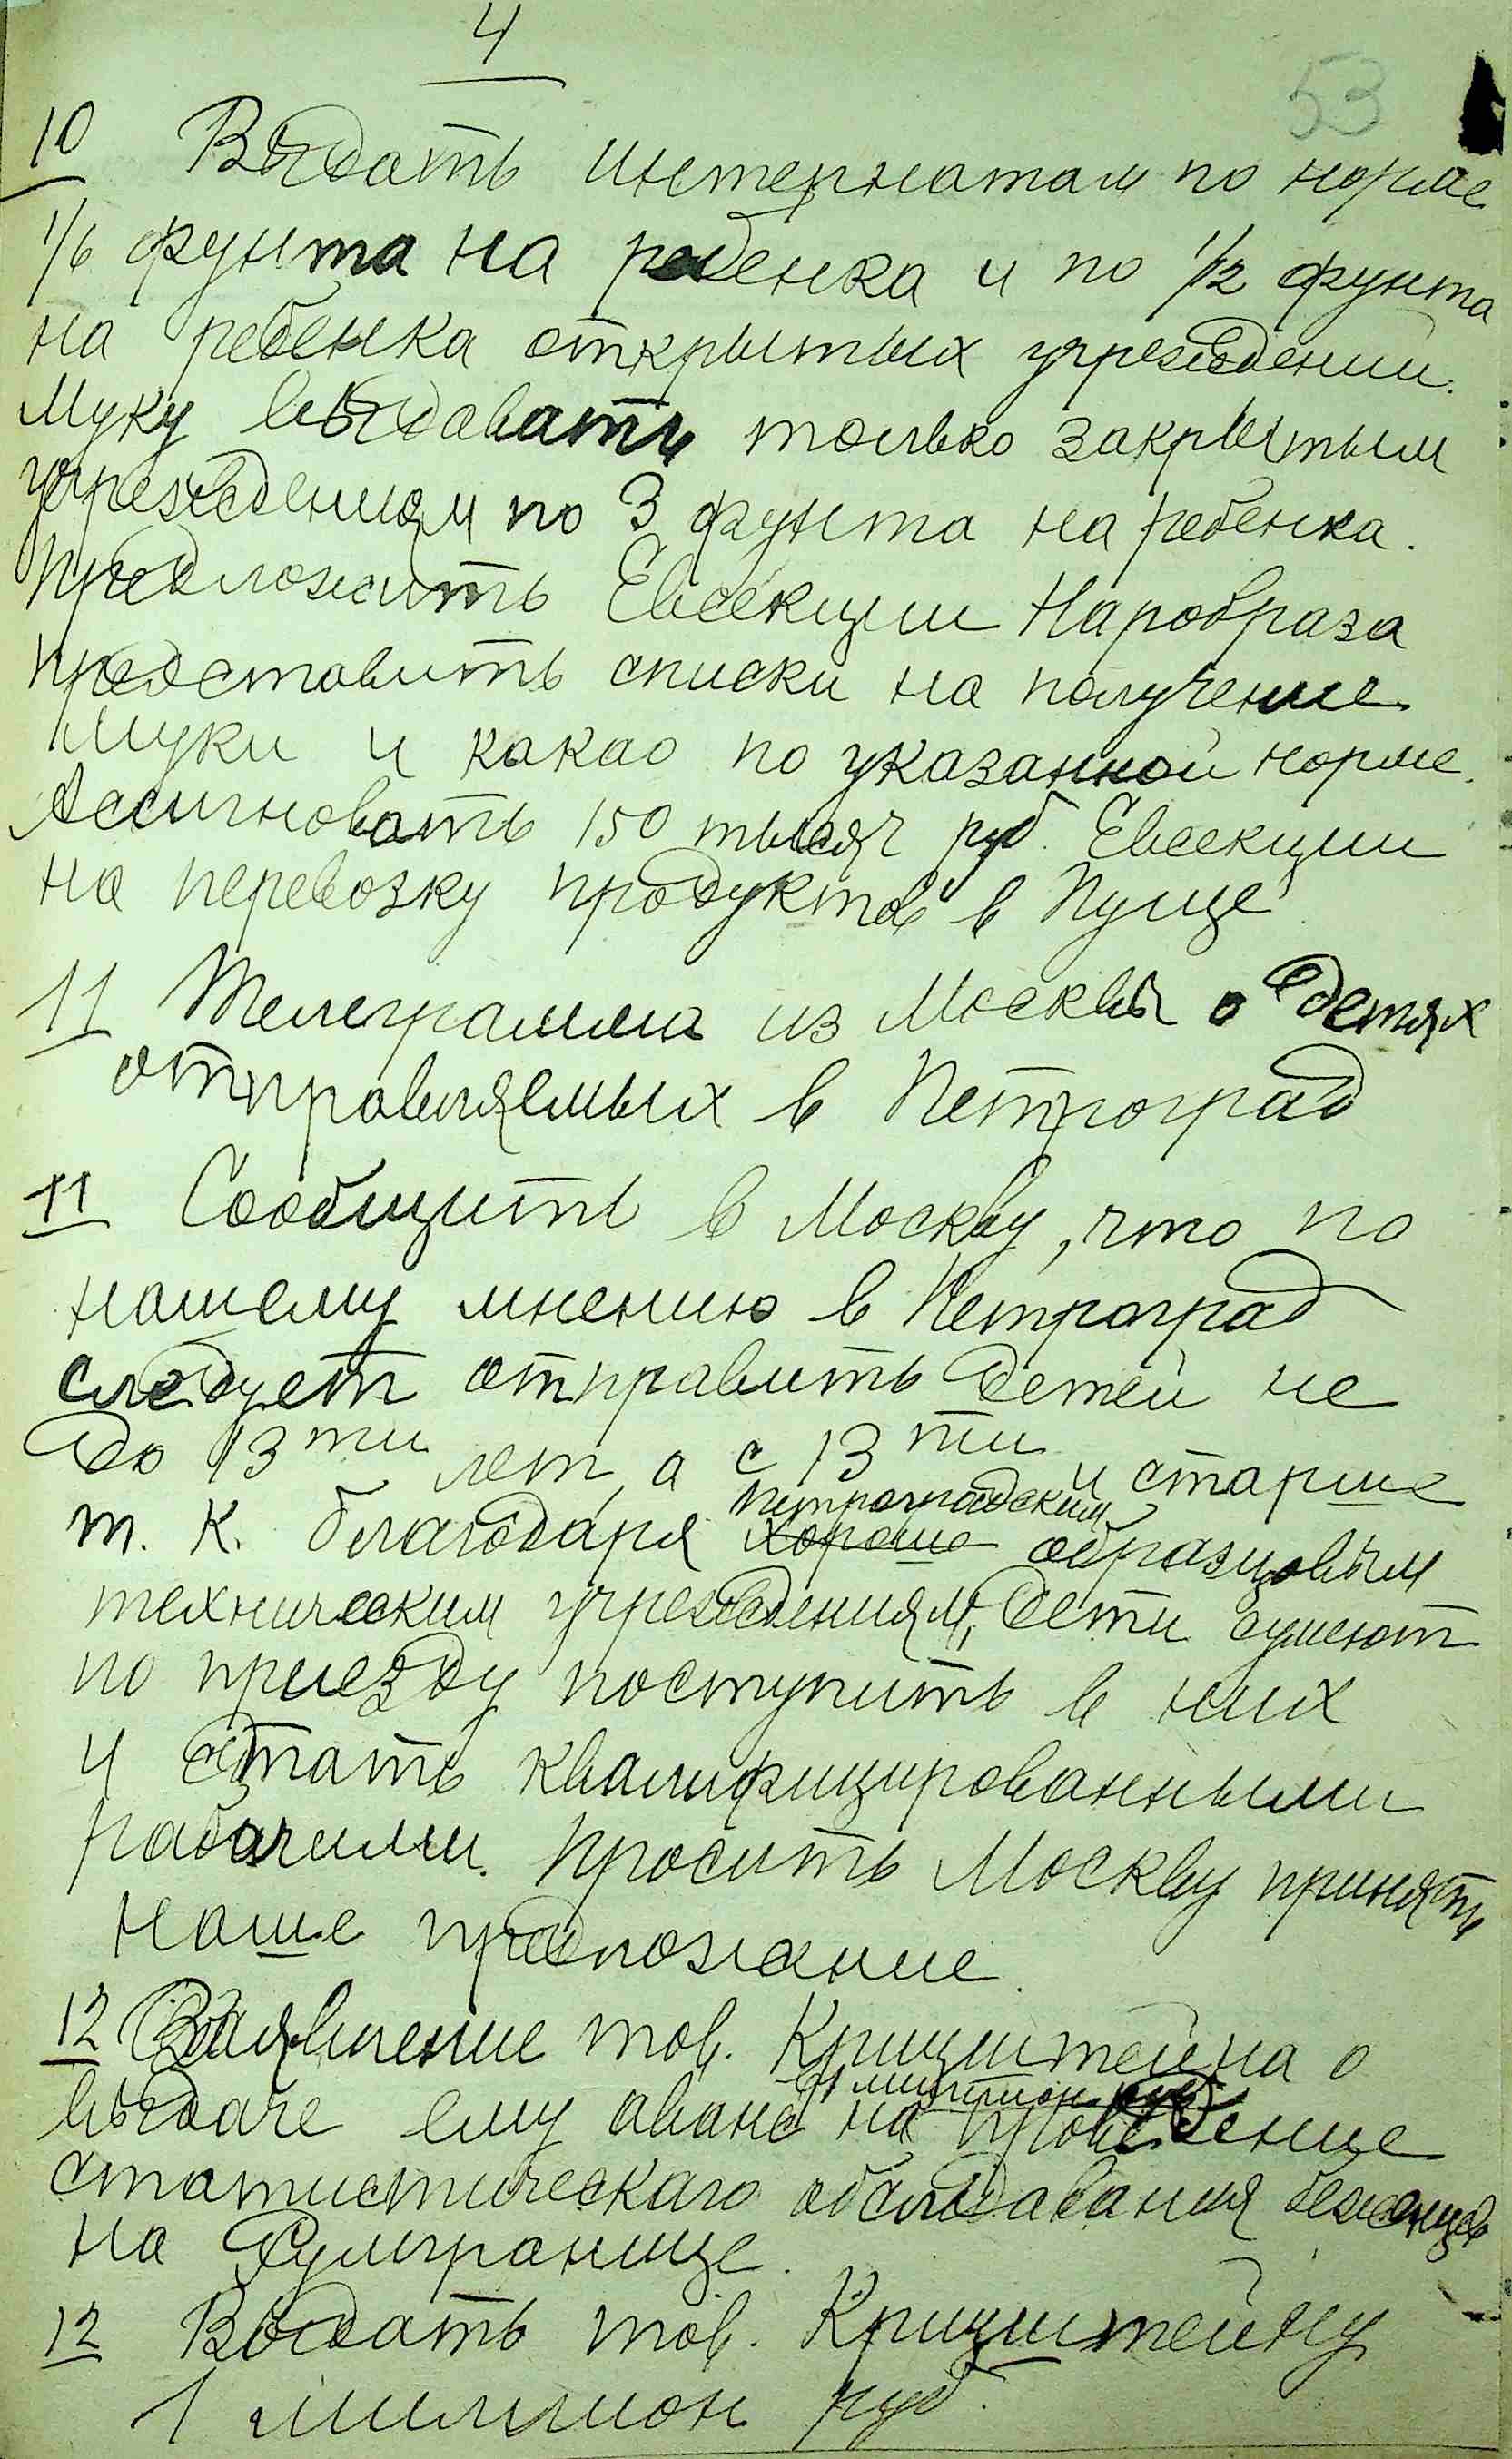 4
53
10 Выдать интернатам по норме
1/6 фунта на ребенка и по 1/2 фунта
на ребенка открытых учреждений.
Муку выдавать только закрытым
учреждениям по 3 фунта на ребенка.
Предложить Евсекции Наробраза
представить списки на получение
муки и какао по указанной норме.
Ассигновать 150 тысяч руб. Евсекции
на перевозку продуктов в Пуще
11 Телеграмма из Москвы о детях
отправляемых в Петроград
11 Сообщить в Москву, что по
нашему мнению в Петроград
следует отправить детей не
до 13ти лет, а с 13ти и старше
петроградским
т. к. благодаря хороше образцовым
техническим учреждениям, дети сумеют
по приезду поступить в них
и стать квалифицированными
рабочими. Просить Москву принять
наше предложение.
12 Заявление тов. Крицштейна о
1 миллион руб
выдаче ему аванс на проведение
статистическаго обследования беженцев
на Румгранице.
12 Выдать тов. Крицштейну
1 миллион руб.